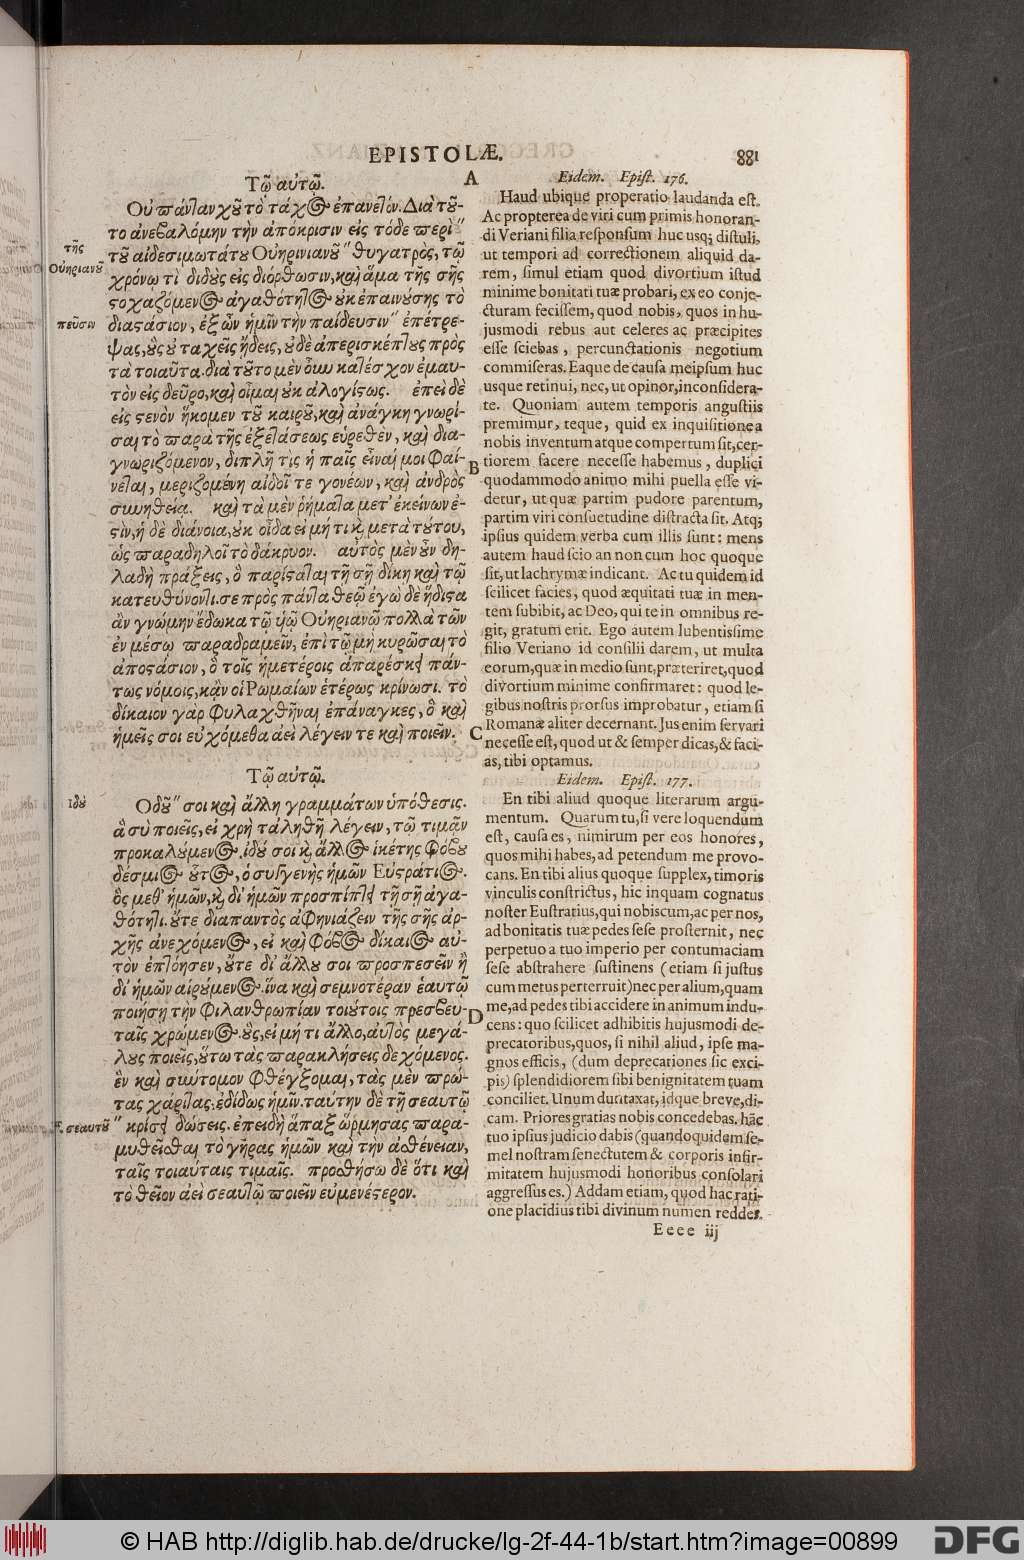 EPISTOLÆ.
881
Τῷ αὐτῷ.
Οὐ πάνταν χοῦ τὸ τάχος ἐπαινετόν. Διὰ τοῦ-
το ἀνεβαλόμην τὴν ἀπόκρισιν εἰς τόδε περὶ"
τοῦ αἰδεσιμωτάτου Οὐηρινιανοῦ" θυγατρὸς, τῷ
χρόνῳ τὶ διδοὺς εἰς διόρθωσιν, καὶ ἅμα τῆς σῆς
στοχαζόμενος ἀγαθότητος οὐκ ἐπαινούσης τὸ
διαστάσιον, ἐξ ὧν ἡμῖν τὴν παίδευσιν" ἐπέτρε-
ψας, οὓς οὐ ταχεῖς ᾔδεις, οὐδὲ ἀπερισκέπτους πρὸς
τὰ τοιαῦτα. διὰ τοῦτο μὲν οὖν κατέσχον ἐμαυ-
τὸν εἰς δεῦρο, καὶ οἶμαι οὐκ ἀλογίστως. ἐπεὶ δὲ
εἰς στενὸν ἥκομεν τοῦ καιροῦ, καὶ ἀνάγκη γνωρί-
σαι τὸ παρὰ τῆς ἐξετάσεως εὑρεθὲν, καὶ δια-
γνωριζόμενον, διπλῆ τὶς ἡ παῖς εἶναί μοι φαί-
νεται, μεριζομένη αἰδοῖ τε γονέων, καὶ ἀνδρὸς
συνηθεία. καὶ τὰ μὲν ῥήματα μετ' ἐκείνων ἐ-
στὶν, ἡ δὲ διάνοια, οὐκ οἶδα εἰ μή τι καὶ μετὰ τούτου,
ὡς παραδηλοῖ τὸ δάκρυον. αὐτὸς μὲν οὖν δη-
λαδὴ πράξεις, ὃ παρίσταται τῇ σῇ δίκῃ καὶ τῷ
κατευθύνοντι. σε πρὸς πάντα θεῷ ἐγὼ δὲ ἥδιστα
ἂν γνώμην ἔδωκα τῷ υἱῷ Οὐηριανῷ πολλὰ τῶν
ἐν μέσῳ παραδραμεῖν, ἐπὶ τῷ μὴ κυρῶσαι τὸ
ἀποστάσιον, ὃ τοῖς ἡμετέροις ἀπαρέσκει πάν-
τως νόμοις, κἂν οἱ Ῥωμαίων ἑτέρως κρίνωσι. τὸ
δίκαιον γὰρ φυλαχθῆναι ἐπάναγκες, ὃ καὶ
ἡμεῖς σοι εὐχόμεθα ἀεὶ λέγειν τε καὶ ποιεῖν.
τῆς
Οὐηριανοῦ
πεῦσιν
Τῷ αὐτῷ.
Οδοῦ" σοι καὶ ἄλλη γραμμάτων ὑπόθεσις.
ἃ σὺ ποιεῖς, εἰ χρὴ τἀληθῆ λέγειν, τῷ τιμᾷν
προκαλούμενος. ἰδού σοι καὶ ἄλλος ἱκέτης φόβου
δέσμιος οὗτος, ὁ συγγενὴς ἡμῶν Εὐστράτιος.
ὃς μεθ' ἡμῶν, καὶ δι' ἡμῶν προσπίπτει τῇ σῇ ἀγα-
θότητι. οὔτε διαπαντὸς ἀφηνιάζειν τῆς σῆς ἀρ-
χῆς ἀνεχόμενος, εἰ καὶ φόβος δίκαιος αὐ-
τὸν ἐπτόησεν, οὔτε δι' ἄλλου σοι προσπεσεῖν ἢ
δι' ἡμῶν αἱρούμενος. ἵνα καὶ σεμνοτέραν ἑαυτῷ
ποιήσῃ τὴν φιλανθρωπίαν τοιούτοις πρεσβευ-
ταῖς χρώμενος. οὓς, εἰ μή τι ἄλλο, αὐτὸς μεγά-
λους ποιεῖς, οὕτω τὰς παρακλήσεις δεχόμενος.
ἓν καὶ σύντομον φθέγξομαι, τὰς μὲν πρώ-
τας χάριτας, ἐδίδως ἡμῖν. ταύτην δὲ τῇ σεαυτῷ
" κρίσει δώσεις. ἐπειδὴ ἅπαξ ὥρμησας παρα-
μυθεῖσθαι τὸ γῆρας ἡμῶν καὶ τὴν ἀσθένειαν,
ταῖς τοιαύταις τιμαῖς. προσθήσω δὲ ὅτι καὶ
τὸ θεῖον ἀεὶ σεαυτῷ ποιεῖν εὐμενέστερον.
ἰδοὺ
F. σεαυτοῦ
A
B
C
D
Eidem. Epist. 176.
Haud ubique properatio laudanda est.
Ac propterea de viri cum primis honoran-
di Veriani filia responsum huc usq; distuli,
ut tempori ad correctionem aliquid da-
rem, simul etiam quod divortium istud
minime bonitati tuæ probari, ex eo conje-
cturam fecissem, quod nobis, quos in hu-
jusmodi rebus aut celeres ac præcipites
esse sciebas, percunctationis negotium
commiseras. Eaque de causa meipsum huc
usque retinui, nec, ut opinor, inconsidera-
te. Quoniam autem temporis angustiis
premimur, teque, quid ex inquisitione a
nobis inventum atque compertum sit, cer-
tiorem facere necesse habemus, duplici
quodammodo animo mihi puella esse vi-
detur, ut quæ partim pudore parentum,
partim viri consuetudine distracta sit. Atq;
ipsius quidem verba cum illis sunt: mens
autem haud scio an non cum hoc quoque
sit, ut lachrymæ indicant. Ac tu quidem id
scilicet facies, quod æquitati tuæ in men-
tem subibit, ac Deo, qui te in omnibus re-
git, gratum erit. Ego autem lubentissime
filio Veriano id consilii darem, ut multa
eorum, quæ in medio sunt, præteriret, quod
divortium minime confirmaret: quod le-
gibus nostris prorsus improbatur, etiam si
Romanæ aliter decernant. Jus enim servari
necesse est, quod ut & semper dicas, & faci-
as, tibi optamus.
Eidem. Epist. 177.
En tibi aliud quoque literarum argu-
mentum. Quarum tu, si vere loquendum
est, causa es, nimirum per eos honores,
quos mihi habes, ad petendum me provo-
cans. En tibi alius quoque supplex, timoris
vinculis constrictus, hic inquam cognatus
noster Eustratius, qui nobiscum, ac per nos,
ad bonitatis tuæ pedes sese prosternit, nec
perpetuo a tuo imperio per contumaciam
sese abstrahere sustinens (etiam si justus
cum metus perterruit) nec per alium, quam
me, ad pedes tibi accidere in animum indu-
cens: quo scilicet adhibitis hujusmodi de-
precatoribus, quos, si nihil aliud, ipse ma-
gnos efficis, (dum deprecationes sic exci-
pis) splendidiorem sibi benignitatem tuam
conciliet. Unum duntaxat, idque breve, di-
cam. Priores gratias nobis concedebas. hãc
tuo ipsius judicio dabis (quandoquidem se-
mel nostram senectutem & corporis infir-
mitatem hujusmodi honoribus consolari
aggressus es.) Addam etiam, quod hac rati-
one placidius tibi divinum numen reddes.
Eeee iij
© HAB http://diglib.hab.de/drucke/lg-2f-44-1b/start.htm?image=00899
DFG